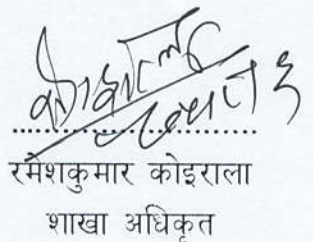 रमेशकुमार कोइराला
शाखा अधिकृत